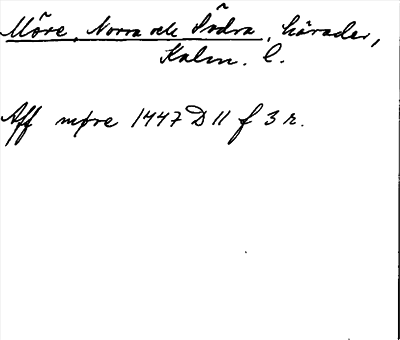 Möre, Norra och Södra, härader,
Kalm. l.
Aff møre 1447 D 11 f 3 r.